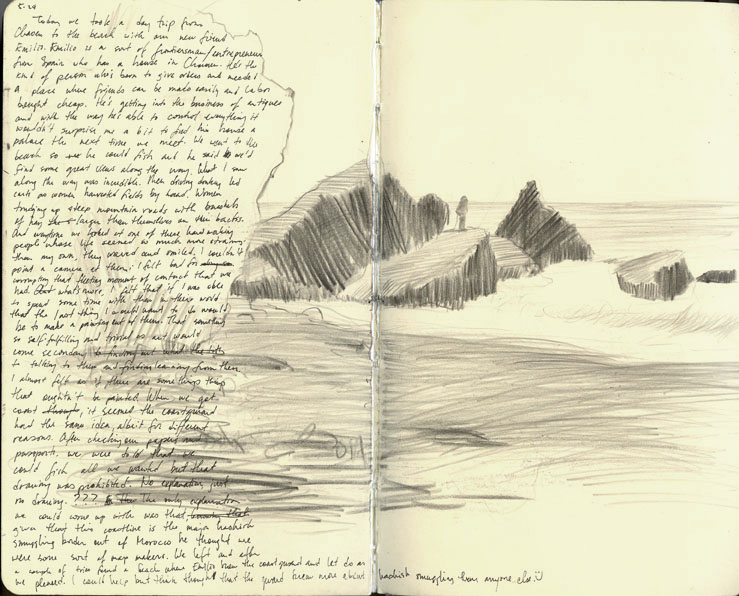 5.24
Today we took a day trip from
Chaouen to the beach with our new friend
Emilio. Emilio is a sort of frontiersman/entrepreneur
from Spain who has a house in Chaouen. He's the
kind of person who's born to give orders and needed
a place where friends can be made easily and labor
bought cheap. He's getting into the business of antiques
and with the way he's able to control everything it
wouldn't surprise me a bit to find his house a
palace the next time we meet. We went to the
beach so he could fish and he said we'd
find some great views along the way. What I saw
along the way was incredible. Men driving donkey led
carts as women harvested fields by hand. Women
trudging up steep mountain roads with bushels
of hay larger than themselves on their backs.
And everytime we looked at one of these hard working
people whose life seemed so much more straining
than my own, they waved and smiled. I couldn't
point a camera at them; I felt bad for
corrupting that fleeting moment of contact that we
had. what's more, I felt that if I was able
to spend some time with them in their world
that the last thing I would want to do would
be to make a painting out of them. That something
so self-fulfilling and trivial as art would
come secondary to finding out what the
to talking to them and learning from them.
I almost felt as if there are some things
that oughtn't be painted. When we got
coast though, it seemed the coastguard
had the same idea, albeit for different
reasons. After checking our papers and
passports, we were told that we
could fish all we wanted but that
drawing was prohibited. No explanation, just
no drawing. ??? The only explanation
we could come up with was that
given that this coastline is the major hashish
smuggling border out of Morocco he thought we
were some sort of map makers. We left and after
a couple of tries found a beach where Emilio knew the coastguard and let do as
we pleased. I could help but think that the guard knew more about hashish smuggling than anyone else :)